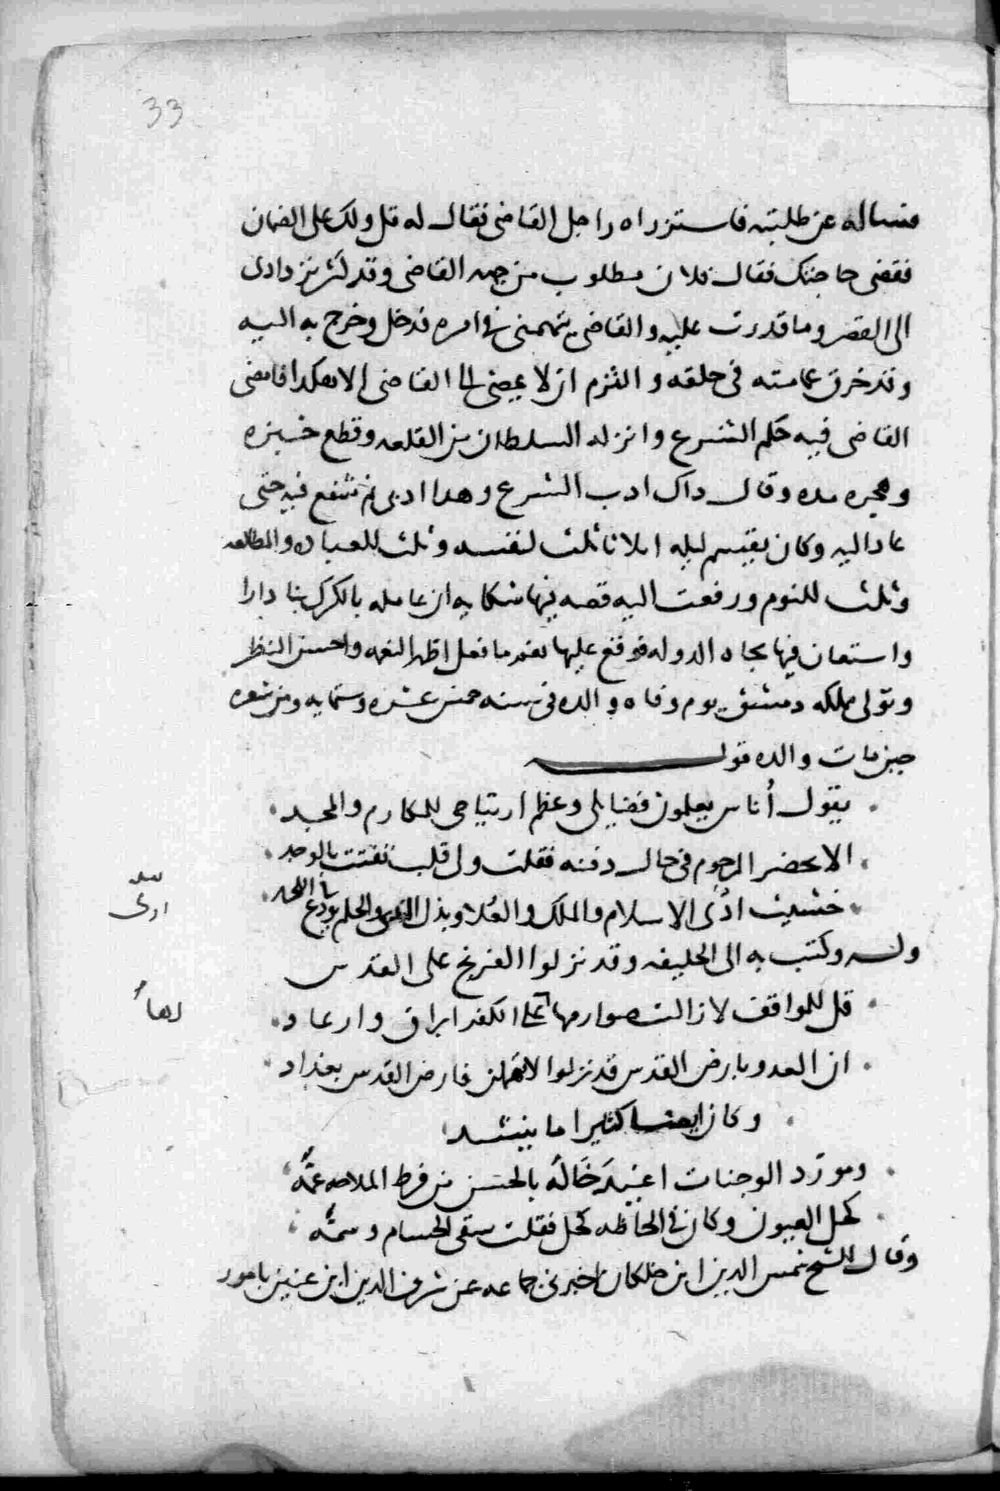 33
فساله عن طلبته فاستزراه راجل القاضى فقال له قل ولك على الضمان
فقضى حاجتك فقال فلان مطلوب من جهه القاضى وقد كثر تزدادى
الى القصر وما قدرت عليه والقاضى يتهمنى فى امره فدخل وخرج به اليه
وقد خرق عمامته فى حلقه والتزم ان لا يمضى الى القاضى الا هكذا فامضى
القاضى فيه حكم الشرع وانزله السلطان من القلعه وقطع خبزه
وهجره مده وقال ذاك ادب الشرع وهذا ادبى ثم تشفع فيه حتى
عاد اليه وكان يقسم ليله اثلاثا ثلث لنفسه وثلث للعباده والمطالعه
وثلث للنوم ورفعت اليه قصه فيها شكايه ان عامله بالكرك بنا دارا
واستعان فيها بجاه الدوله فوقع عليها نعم ما فعل اظهر النعمه واحسن النظر
وتولى مملكه دمشق يوم وفاه والده فى سنه خمس عشره وستمايه ومن شعره
حين مات والده قوله
يقول أناس يعلمون فضايلى وعظم ارتياحى للمكارم والمجد
الا تحضر المرحوم فى حال دفنه فقلت ولى قلب تفتت بالوجد
خشيت ارى الاسلام والملك والعُلا وبذل الندى والحلم يودع باللحد
سد
ارى
وله وكتب به الى الخليفه وقد نزلوا الفرنج على القدس
قل للمواقف لا زالت صوارمها على الكفر ابراق وارعاد
لها
ان العدو بارض القدس قد نزلوا لا تهملن فارض القدس بغداد
وكان ايضا كثيرا ما ينشد
ومورّد الوجنات اغيد خَالُه بالحسن من فرط الملاحه عمُّه
كحل العيون وكان فى الحاظه كحل فقلت سقى الحسام وسمُّه
وقال الشيخ شمس الدين ابن خلكان اخبرنى جماعه عن شرف الدين ابن عنين بامور